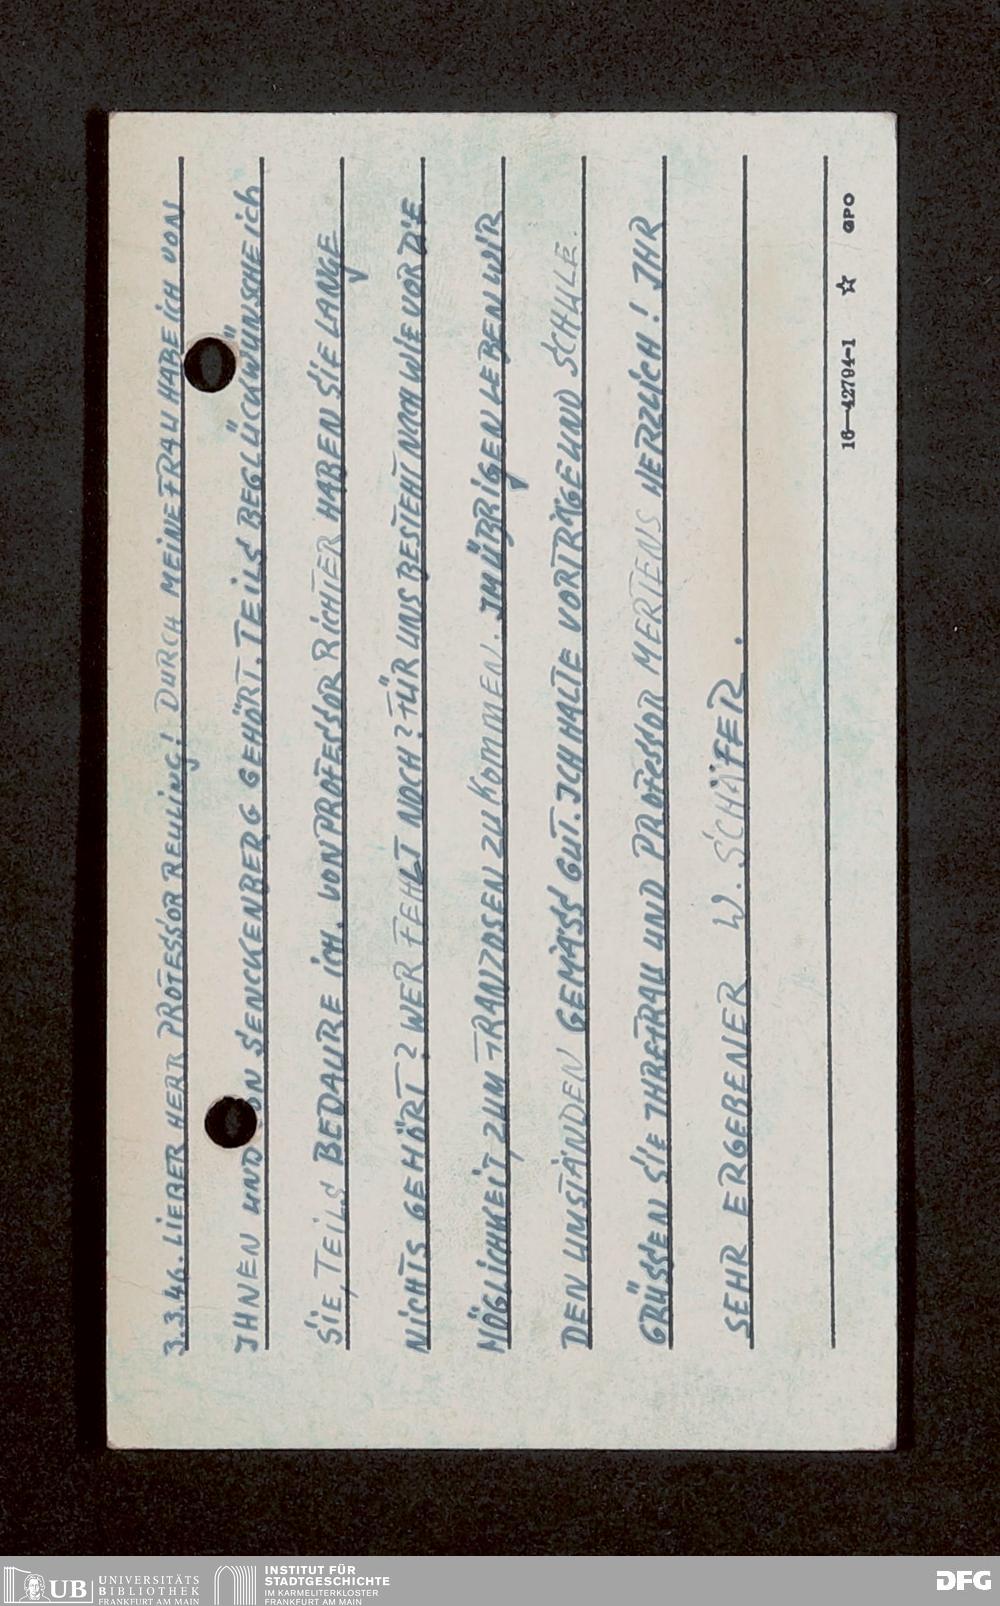 3.3.46. LIEBER HERR PROFESSOR REULING! DURCH MEINE FRAU HABE ICH VON
IHNEN UND VON SENCKENBERG GEHÖRT. TEILS BEGLÜCKWÜNSCHE ICH
SIE, TEILS BEDAURE ICH. VON PROFESSOR RICHTER HABEN SIE LANGE
NICHTS GEHÖRT? WER FEHLT NOCH? FÜR UNS BESTEHT NACH WIE VOR DIE
MÖGLICHKEIT, ZUM FRANZOSEN ZU KOMMEN. IM ÜBRIGEN LEBEN WIR
DEN UMSTÄNDEN GEMÄSS GUT. ICH HALTE VORTRÄGE UND SCHULE.
GRÜSSEN SIE IHRE FRAU UND PROFESSOR MERTENS HERZLICH! IHR
SEHR ERGEBENER W. SCHÄFER.
16—42794-1 ☆ GPO
UB UNIVERSITÄTS
BIBLIOTHEK
FRANKFURT AM MAIN
INSTITUT FÜR
STADTGESCHICHTE
IM KARMELITERKLOSTER
FRANKFURT AM MAIN
DFG